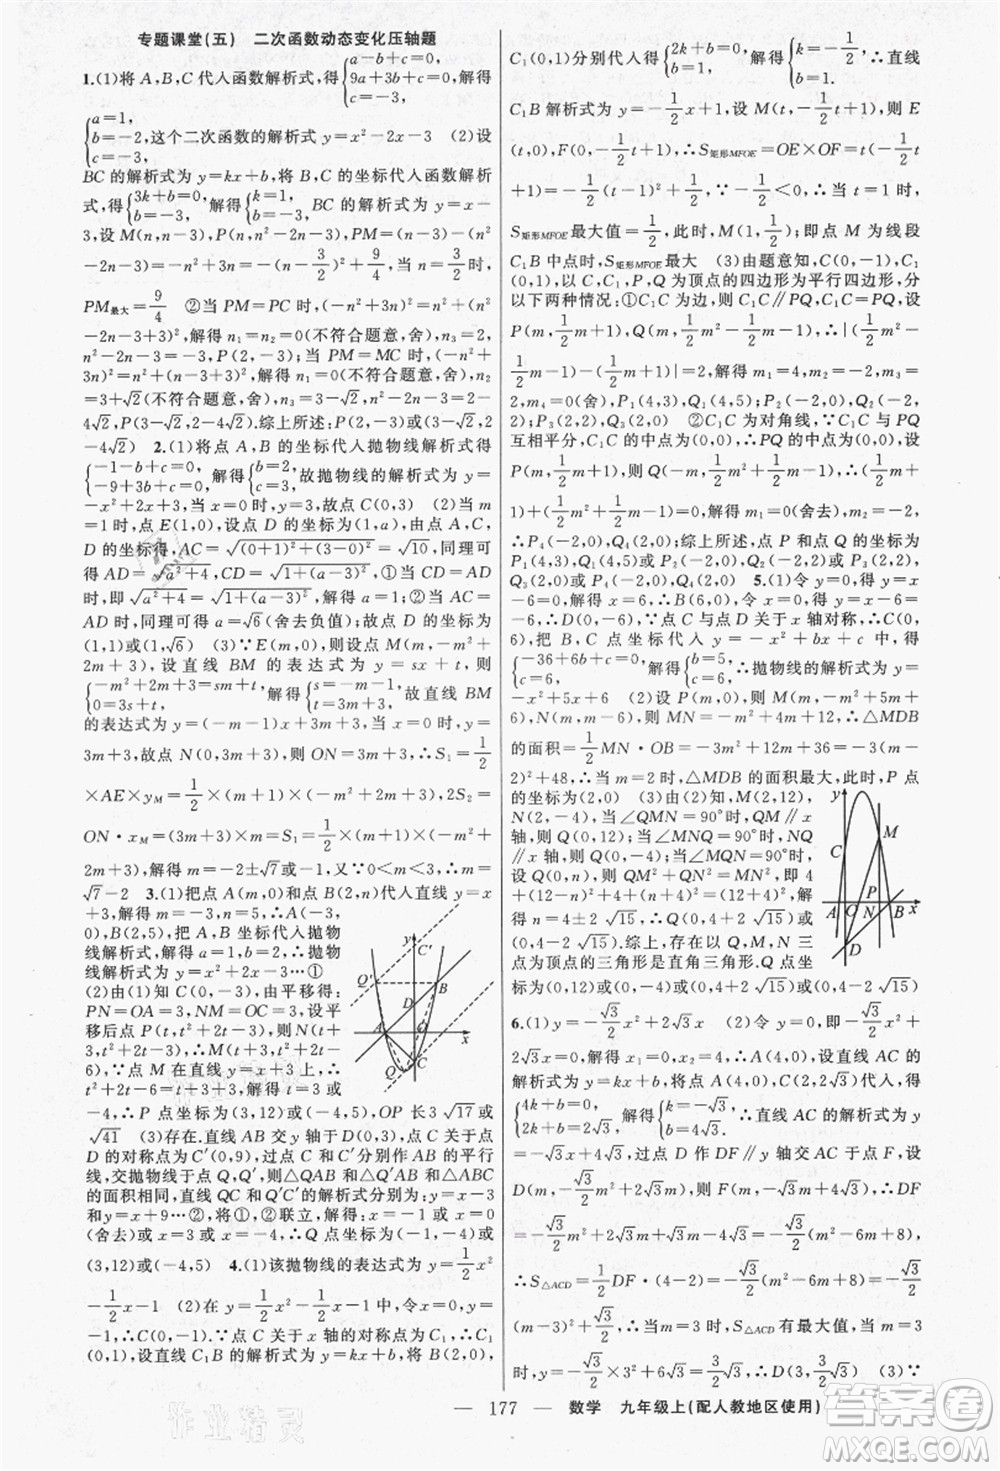 专题课堂(五) 二次函数动态变化压轴题
1.(1)将A,B,C代入函数解析式,得{a-b+c=0, 9a+3b+c=0, c=-3,解得
{a=1, b=-2, c=-3,这个二次函数的解析式y=x²-2x-3 (2)设
BC的解析式为y=kx+b,将B,C的坐标代入函数解析
式,得{3k+b=0, b=-3,解得{k=1, b=-3,BC的解析式为y=x-
3,设M(n,n-3),P(n,n²-2n-3),PM=(n-3)-(n²
-2n-3)=-n²+3n=-(n-3/2)²+9/4,当n=3/2时,
PM最大=9/4 ②当PM=PC时,(-n²+3n)²=n²+(n²
-2n-3+3)²,解得n₁=n₂=0(不符合题意,舍),n₃=2,
n²-2n-3=-3,P(2,-3);当PM=MC时,(-n²+
3n)²=n²+(n-3+3)²,解得n₁=0(不符合题意,舍),n₂
=3+√2(不符合题意,舍),n₃=3-√2,n²-2n-3=2-
4√2,P(3-√2,2-4√2).综上所述:P(2,-3)或(3-√2,2
-4√2) 2.(1)将点A,B的坐标代入抛物线解析式得
{-1-b+c=0, -9+3b+c=0,解得{b=2, c=3,故抛物线的解析式为y=
-x²+2x+3,当x=0时,y=3,故点C(0,3) (2)当m
=1时,点E(1,0),设点D的坐标为(1,a),由点A,C,
D的坐标得,AC=√(0+1)²+(3-0)²=√10,同理可
得AD=√a²+4,CD=√1+(a-3)²,①当CD=AD
时,即√a²+4=√1+(a-3)²,解得a=1;②当AC=AD
时,同理可得a=√6(舍去负值);故点D的坐标为
(1,1)或(1,√6) (3)∵E(m,0),则设点M(m,-m²+
2m+3),设直线BM的表达式为y=sx+t,则
{-m²+2m+3=sm+t, 0=3s+t,解得{s=-m-1, t=3m+3,故直线BM
的表达式为y=(-m-1)x+3m+3,当x=0时,y=
3m+3,故点N(0,3m+3),则ON=3m+3,∴S₁=1/2
×AE×yM=1/2×(m+1)×(-m²+2m+3),2S₂=
ON·xM=(3m+3)×m=S₁=1/2×(m+1)×(-m²+
2m+3),解得m=-2±√7或-1,又∵0<m<3,∴m=
√7-2 3.(1)把点A(m,0)和点B(2,n)代入直线y=x
+3,解得:m=-3,n=5,∴A(-3,
0),B(2,5),把A、B坐标代入抛物
线解析式,解得:a=1,c=-3.∴抛物
线解析式为y=x²+2x-3…①
(2)由(1)知C(0,-3),由平移得:
PN=OA=3,NM=OC=3,设:平
移后点P(t,t²+2t-3),则N(t+3,
t²+2t-3),∴M(t+3,t²+2t-
6),∵点M在直线y=x+3上,∴
t²+2t-6=t+3+3,解得:t=3或
-4,∴P点坐标为(3,12)或(-4,5),OP长3√17或
√41 (3)存在.直线AB交y轴于D(0,3),点C关于点
D的对称点C′(0,9),过点C和C′分别作AB的平行
线,交抛物线于点Q,Q′,则△QAB和△Q′AB和△ABC
的面积相同,直线QC和Q′C′的解析式分别为:y=x-3
和y=x+9…②,将①、②联立,解得:x=-1或0
(舍去)或x=3或x=-4,∴Q点坐标为(-1,-4)或
(3,12)或(-4,5) 4.(1)该抛物线的表达式为y=1/2x²
-1/2x-1 (2)在y=1/2x²-1/2x-1中,令x=0,得y
=-1,∴C(0,-1).∵点C关于x轴的对称点为C₁,∴C₁
(0,1),设直线C₁B解析式为y=kx+b,将B(2,0),
C₁(0,1)分别代入得{2k+b=0, b=1,解得{k=-1/2, b=1,∴直线
C₁B解析式为y=-1/2x+1,设M(t,-1/2t+1),则E
(t,0),F(0,-1/2t+1),∴S矩形MFOE=OE×OF=t(-1/2t
+1)=-1/2(t-1)²+1/2,∵-1/2<0,∴当t=1时,
S矩形MFOE最大值=1/2,此时,M(1,1/2);即点M为线段
C₁B中点时,S矩形MFOE最大 (3)由题意知,C(0,-1),C₁
(0,1),以C,C₁,P,Q为顶点的四边形为平行四边形,分
以下两种情况:①C₁C为边,则C₁C∥PQ,C₁C=PQ,设
P(m,1/2m+1),Q(m,1/2m²-1/2m-1),∴|(1/2m²-
1/2m-1)-(1/2m+1)|=2,解得:m₁=4,m₂=-2,m₃=
2,m₄=0(舍),P₁(4,3),Q₁(4,5);P₂(-2,0),Q₂(-2,
2);P₃(2,2),Q₃(2,0) ②C₁C为对角线,∵C₁C与PQ
互相平分,C₁C的中点为(0,0),∴PQ的中点为(0,0),设
P(m,1/2m+1),则Q(-m,1/2m²+1/2m-1),∴(1/2m+
1)+(1/2m²+1/2m-1)=0,解得:m₁=0(舍去),m₂=-2,
∴P₄(-2,0),Q₄(2,0);综上所述,点P和点Q的坐标为
P₁(4,3),Q₁(4,5)或P₂(-2,0),Q₂(-2,2)或P₃(2,2),
Q₃(2,0)或P₄(-2,0),Q₄(2,0) 5.(1)令y=0,得x
-6=0,解得x=6,∴B(6,0),令x=0,得y=x-6=-
6,∴D(0,-6),∵点C与点D关于x轴对称,∴C(0,
6),把B,C点坐标代入y=-x²+bx+c中,得
{-36+6b+c=0, c=6,解得{b=5, c=6,∴抛物线的解析式为y=
-x²+5x+6 (2)设P(m,0),则M(m,-m²+5m+
6),N(m,m-6),则MN=-m²+4m+12,∴△MDB
的面积=1/2MN·OB=-3m²+12m+36=-3(m-
2)²+48,∴当m=2时,△MDB的面积最大,此时,P点
的坐标为(2,0) (3)由(2)知,M(2,12),
N(2,-4),当∠QMN=90°时,QM∥x
轴,则Q(0,12);当∠MNQ=90°时,NQ∥
x轴,则Q(0,-4);当∠MQN=90°时,
设Q(0,n),则QM²+QN²=MN²,即4
+(12-n)²+4+(n+4)²=(12+4)²,解
得n=4±2√15,∴Q(0,4+2√15)或(0,
4-2√15).综上,存在以Q,M,N三点为
顶点的三角形是直角三角形.Q点坐标为
(0,12)或(0,-4)或(0,4+2√15)或(0,4-2√15)
6.(1)y=-√3/2x²+2√3x (2)令y=0,即-√3/2x²+
2√3x=0.解得:x=0或x=4,∴A(4,0).设直线AC的
解析式为y=kx+b,将点A(4,0),C(2,2√3)代入得:
{4k+b=0, 2k+b=2√3,解得{k=-√3, b=4√3.∴直线AC的解析式为y
=-√3x+4√3,过点D作DF∥y轴交AC于点F,设
D(m,-√3/2m²+2√3m),则F(m,-√3m+4√3),∴DF
=-√3/2m²+2√3m+√3m-4√3=-√3/2(m²-6m+8),
∴S△ACD=1/2DF·(4-2)=-√3/2(m²-6m+8)=-√3/2
(m-3)²+√3/2,∴当m=3时,S△ACD有最大值,当m=3
时,y=-√3/2×3²+6√3=3√3/2,∴D(3,3√3/2) (3)∵
— 177 — 数学 九年级上(配人教地区使用)